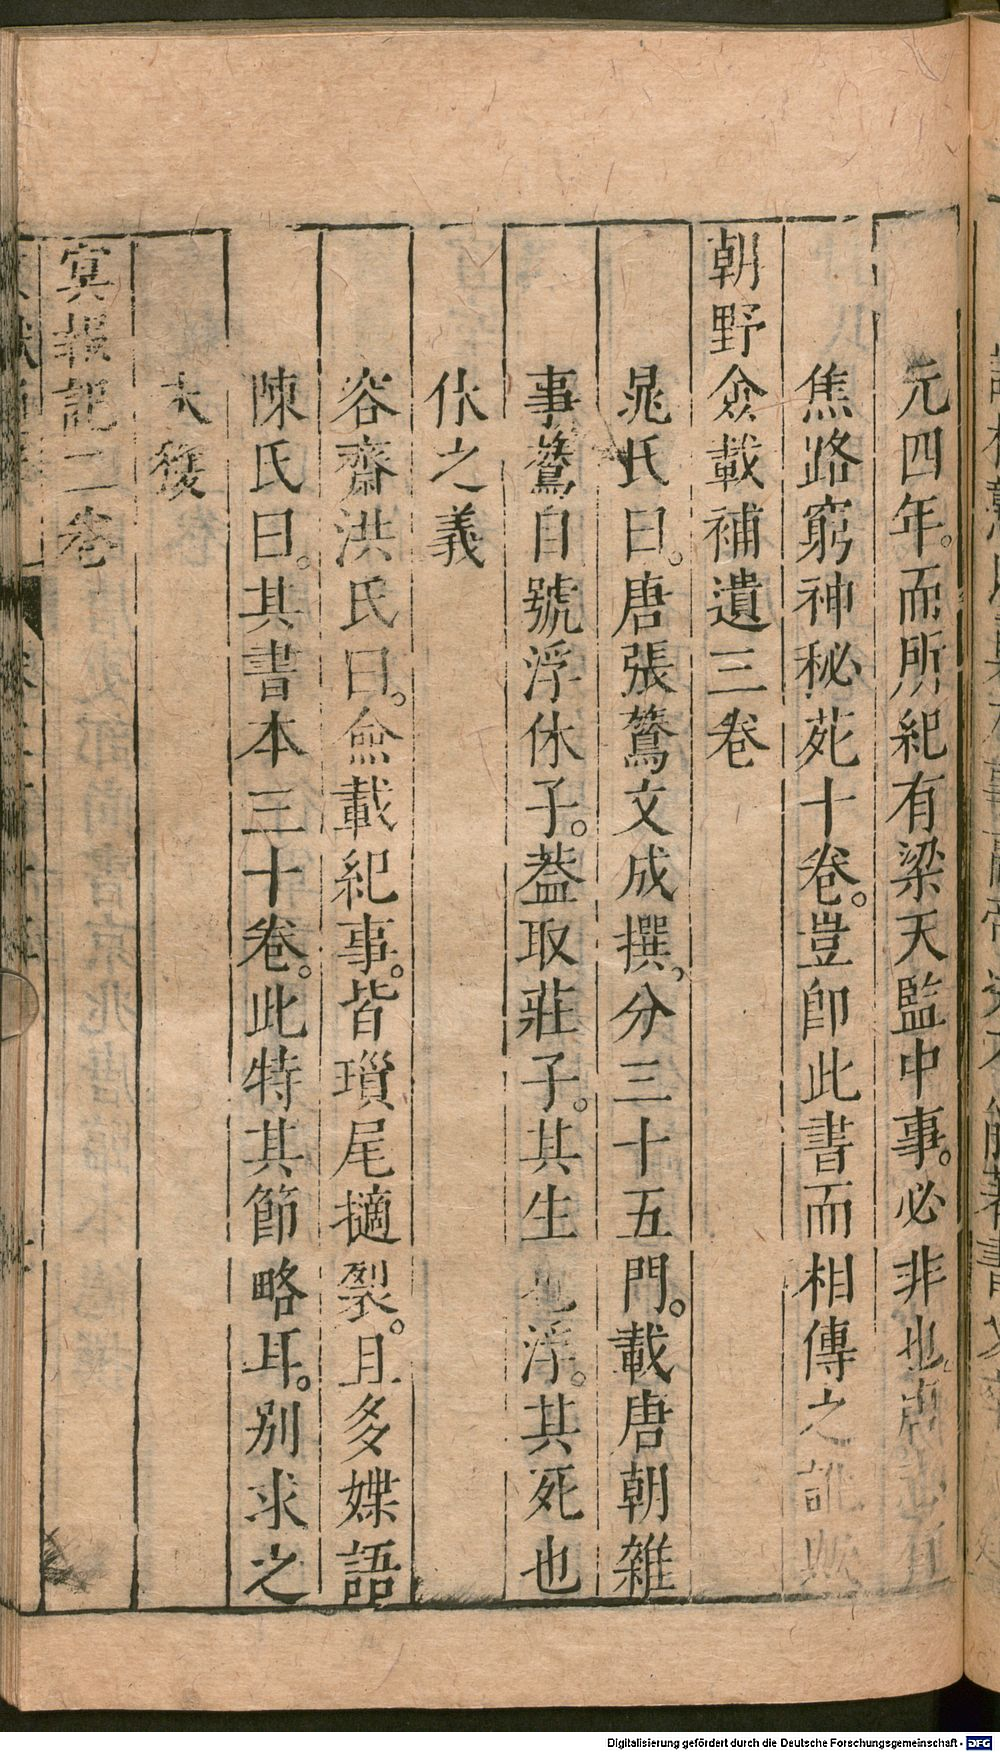 元四年。而所紀有梁天監中事。必非也。唐志有
焦路窮神秘苑十卷。豈卽此書而相傳之訛歟
朝野僉載補遺三卷
晁氏曰。唐張鷟文成撰,分三十五門。載唐朝雜
事。鷟自號浮休子。葢取莊子。其生也浮。其死也
休之義
容齋洪氏曰。僉載紀事。皆瑣尾擿裂。且多媟語
陳氏曰。其書本三十卷。此特其節略耳。别求之
未獲
冥報記二卷
Digitalisierung gefördert durch die Deutsche Forschungsgemeinschaft - DFG